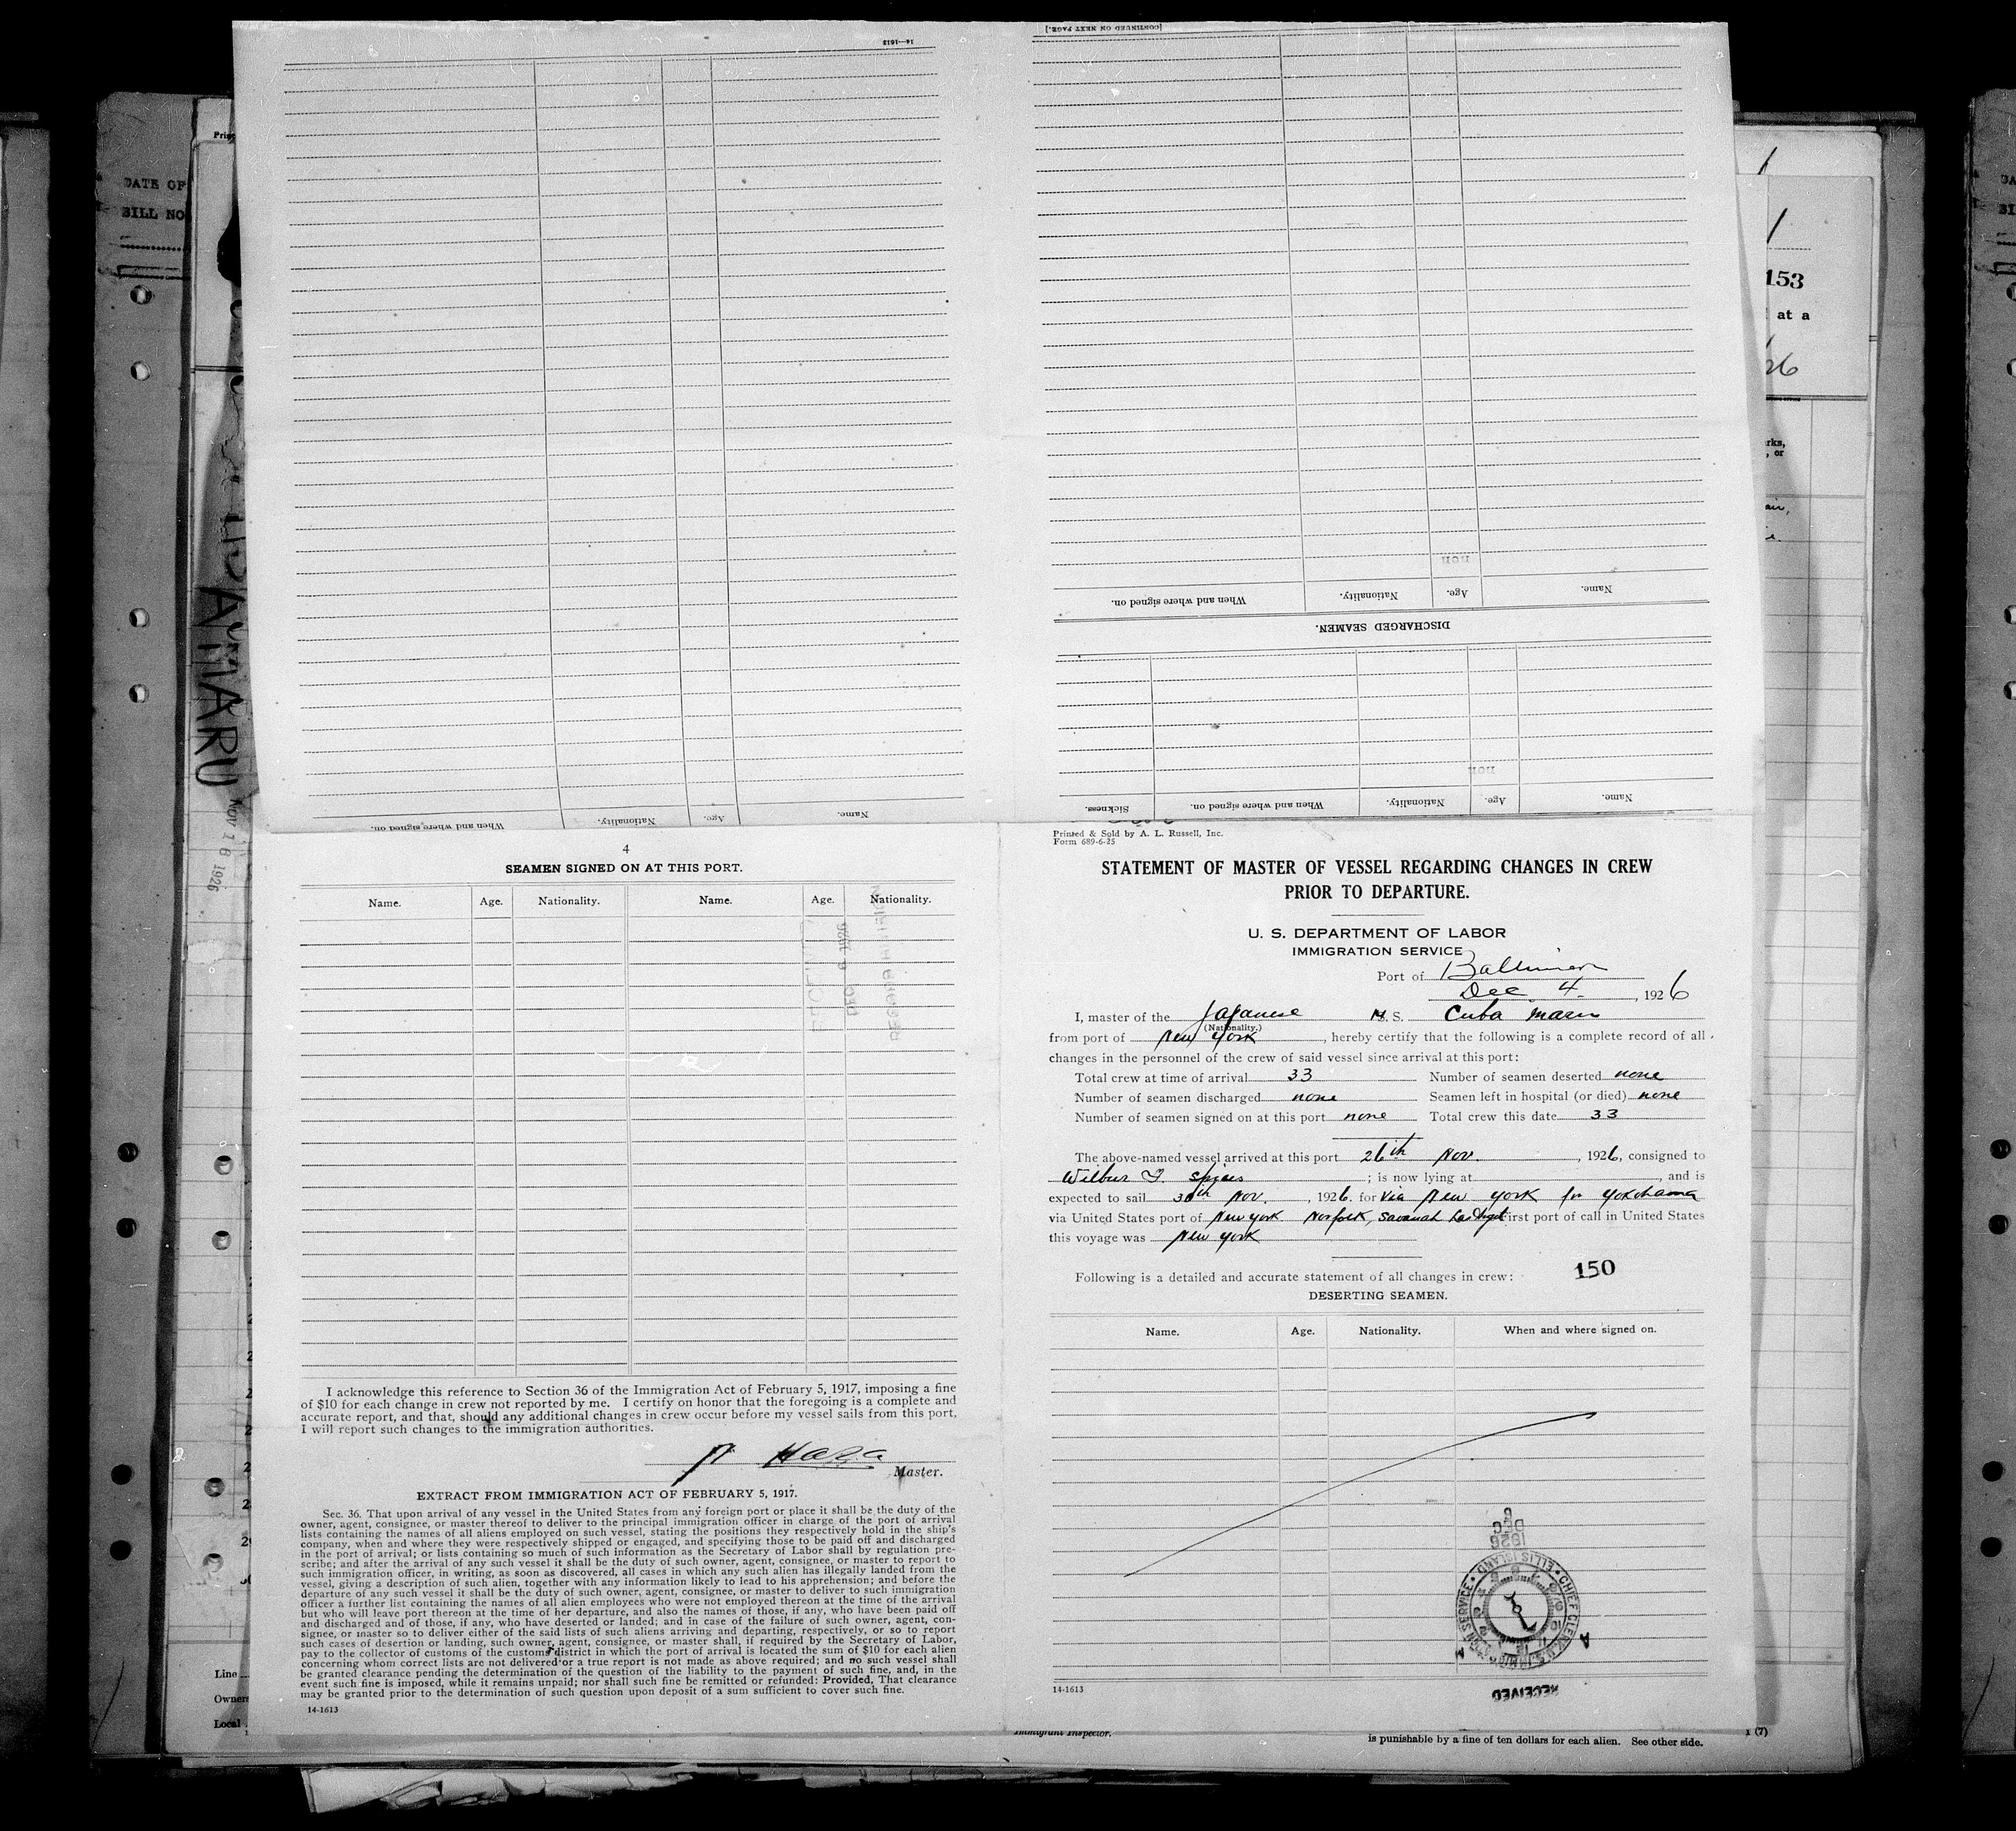 14—1613
[CONTINUED ON NEXT PAGE.]
DATE OF
BILL NO
153
at a
26
rks,
, or
non
When and where signed on. Nationality. Age. Name.
DISCHARGED SEAMEN.
non
Sickness. When and where signed on. Nationality. Age. Name.
When and where signed on. Nationality. Age. Name.
A MARU
NOV 16 1926
4
SEAMEN SIGNED ON AT THIS PORT.
Name. Age. Nationality. Name. Age. Nationality.
DEC 6 1926
I acknowledge this reference to Section 36 of the Immigration Act of February 5, 1917, imposing a fine
of $10 for each change in crew not reported by me. I certify on honor that the foregoing is a complete and
accurate report, and that, should any additional changes in crew occur before my vessel sails from this port,
I will report such changes to the immigration authorities.
Hara
Master.
EXTRACT FROM IMMIGRATION ACT OF FEBRUARY 5, 1917.
Sec. 36. That upon arrival of any vessel in the United States from any foreign port or place it shall be the duty of the
owner, agent, consignee, or master thereof to deliver to the principal immigration officer in charge of the port of arrival
lists containing the names of all aliens employed on such vessel, stating the positions they respectively hold in the ship's
company, when and where they were respectively shipped or engaged, and specifying those to be paid off and discharged
in the port of arrival; or lists containing so much of such information as the Secretary of Labor shall by regulation pre-
scribe; and after the arrival of any such vessel it shall be the duty of such owner, agent, consignee, or master to report to
such immigration officer, in writing, as soon as discovered, all cases in which any such alien has illegally landed from the
vessel, giving a description of such alien, together with any information likely to lead to his apprehension; and before the
departure of any such vessel it shall be the duty of such owner, agent, consignee, or master to deliver to such immigration
officer a further list containing the names of all alien employees who were not employed thereon at the time of the arrival
but who will leave port thereon at the time of her departure, and also the names of those, if any, who have been paid off
and discharged and of those, if any, who have deserted or landed; and in case of the failure of such owner, agent, con-
signee, or master so to deliver either of the said lists of such aliens arriving and departing, respectively, or so to report
such cases of desertion or landing, such owner, agent, consignee, or master shall, if required by the Secretary of Labor,
pay to the collector of customs of the customs district in which the port of arrival is located the sum of $10 for each alien
concerning whom correct lists are not delivered or a true report is not made as above required; and no such vessel shall
be granted clearance pending the determination of the question of the liability to the payment of such fine, and, in the
event such fine is imposed, while it remains unpaid; nor shall such fine be remitted or refunded: Provided, That clearance
may be granted prior to the determination of such question upon deposit of a sum sufficient to cover such fine.
14-1613
Printed & Sold by A. L. Russell, Inc.
Form 689-6-25
STATEMENT OF MASTER OF VESSEL REGARDING CHANGES IN CREW
PRIOR TO DEPARTURE.
U. S. DEPARTMENT OF LABOR
IMMIGRATION SERVICE
Port of Baltimore
Dec. 4. , 1926
I, master of the Japanese M. S. Cuba Maru
(Nationality.)
from port of New York, hereby certify that the following is a complete record of all
changes in the personnel of the crew of said vessel since arrival at this port:
Total crew at time of arrival 33 Number of seamen deserted none
Number of seamen discharged none Seamen left in hospital (or died) none
Number of seamen signed on at this port none Total crew this date 33
The above-named vessel arrived at this port 26th Nov. , 1926, consigned to
Wilbur F. Spices ; is now lying at , and is
expected to sail 30th Nov. , 1926. for via New York for Yokohama
via United States port of New York Norfolk, Savanah Los Angel First port of call in United States
this voyage was New York
Following is a detailed and accurate statement of all changes in crew: 150
DESERTING SEAMEN.
Name. Age. Nationality. When and where signed on.
DEC 6 1926
U.S. IMMIGRATION SERVICE • ELLIS ISLAND • CHIEF CLERK
RECEIVED
14-1613
Line
Owners
Local
Immigrant Inspector.
is punishable by a fine of ten dollars for each alien. See other side.
1 (7)